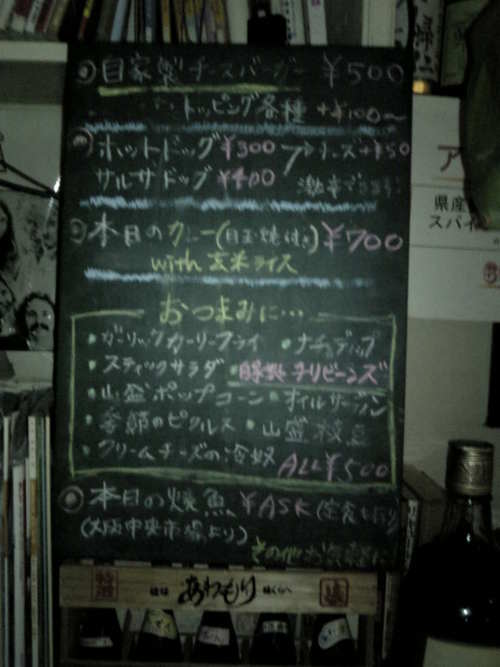 自家製チーズバーガー ¥500
トッピング各種 +¥100〜
ホットドッグ¥300 チーズ+¥50
サルサドッグ¥400 激辛できます
本日のカレー(目玉焼付き) ¥700
with 玄米ライス
おつまみに…
・ガーリックカーリーフライ ・ナチョディップ
・スティックサラダ ・豚挽チリビーンズ
・山盛ポップコーン ・オイルサーディン
・季節のピクルス ・山盛枝豆
・クリームチーズの冷奴 ALL¥500
本日の焼魚 ¥ASK
(大阪中央市場より)
その他お気軽に
特酒 あわもり
県産
スパイ